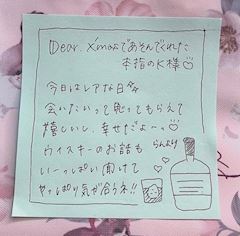 Dear. X'masであそんでくれた
本指のK様♡
今日はレアな日
会いたいって思ってもらえて
嬉しいし、幸せだよ〜っ♡
ウイスキーのお話も
い〜っぱい聞けて
やっぱり気が合うネ!!
らんより